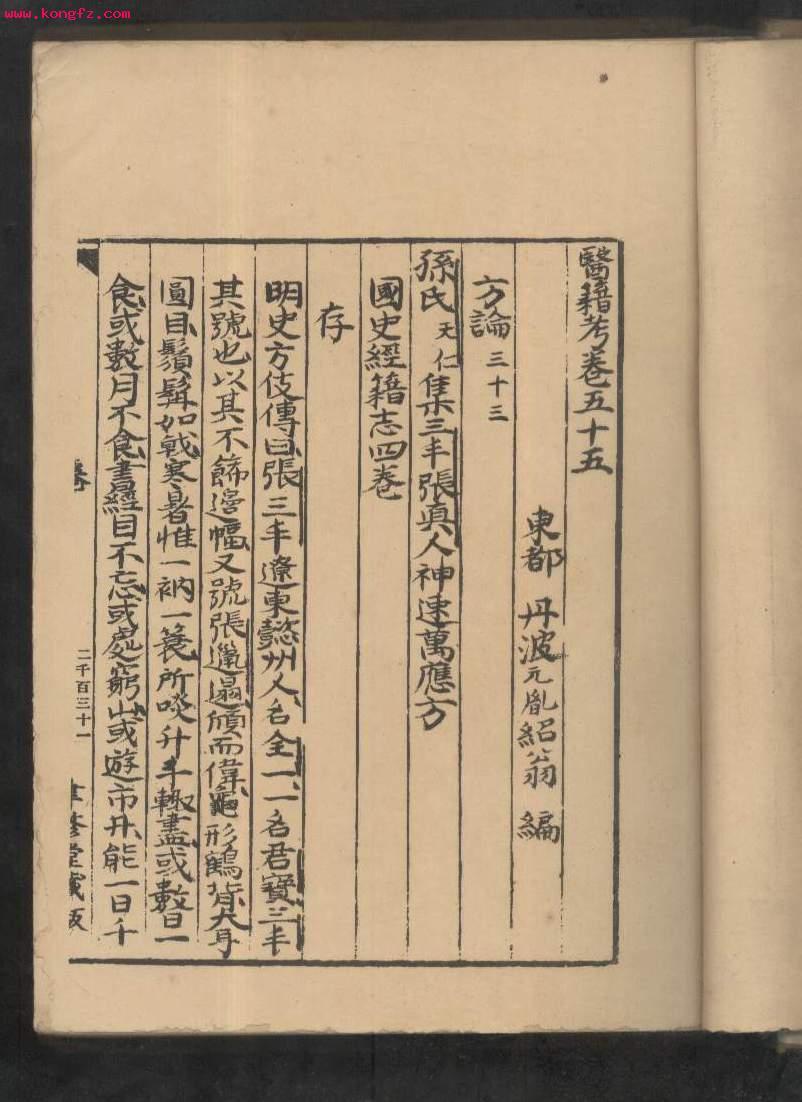 www.kongfz.com
醫籍考卷五十五
東都 丹波元胤紹翁 編
方論三十三
孫氏天仁集三丰張眞人神速萬應方
國史經籍志四卷
存
明史方伎傳曰張三丰遼東懿州人名全一一名君寶三丰
其號也以其不飾邊幅又號張邋遢頎而偉龜形鶴背大耳
圓目鬚髯如戟寒暑惟一衲一蓑所啖升斗輒盡或數日一
食或數月不食書經目不忘或處窮山或遊市井能一日千
卷
二千百三十一
聿修堂藏版